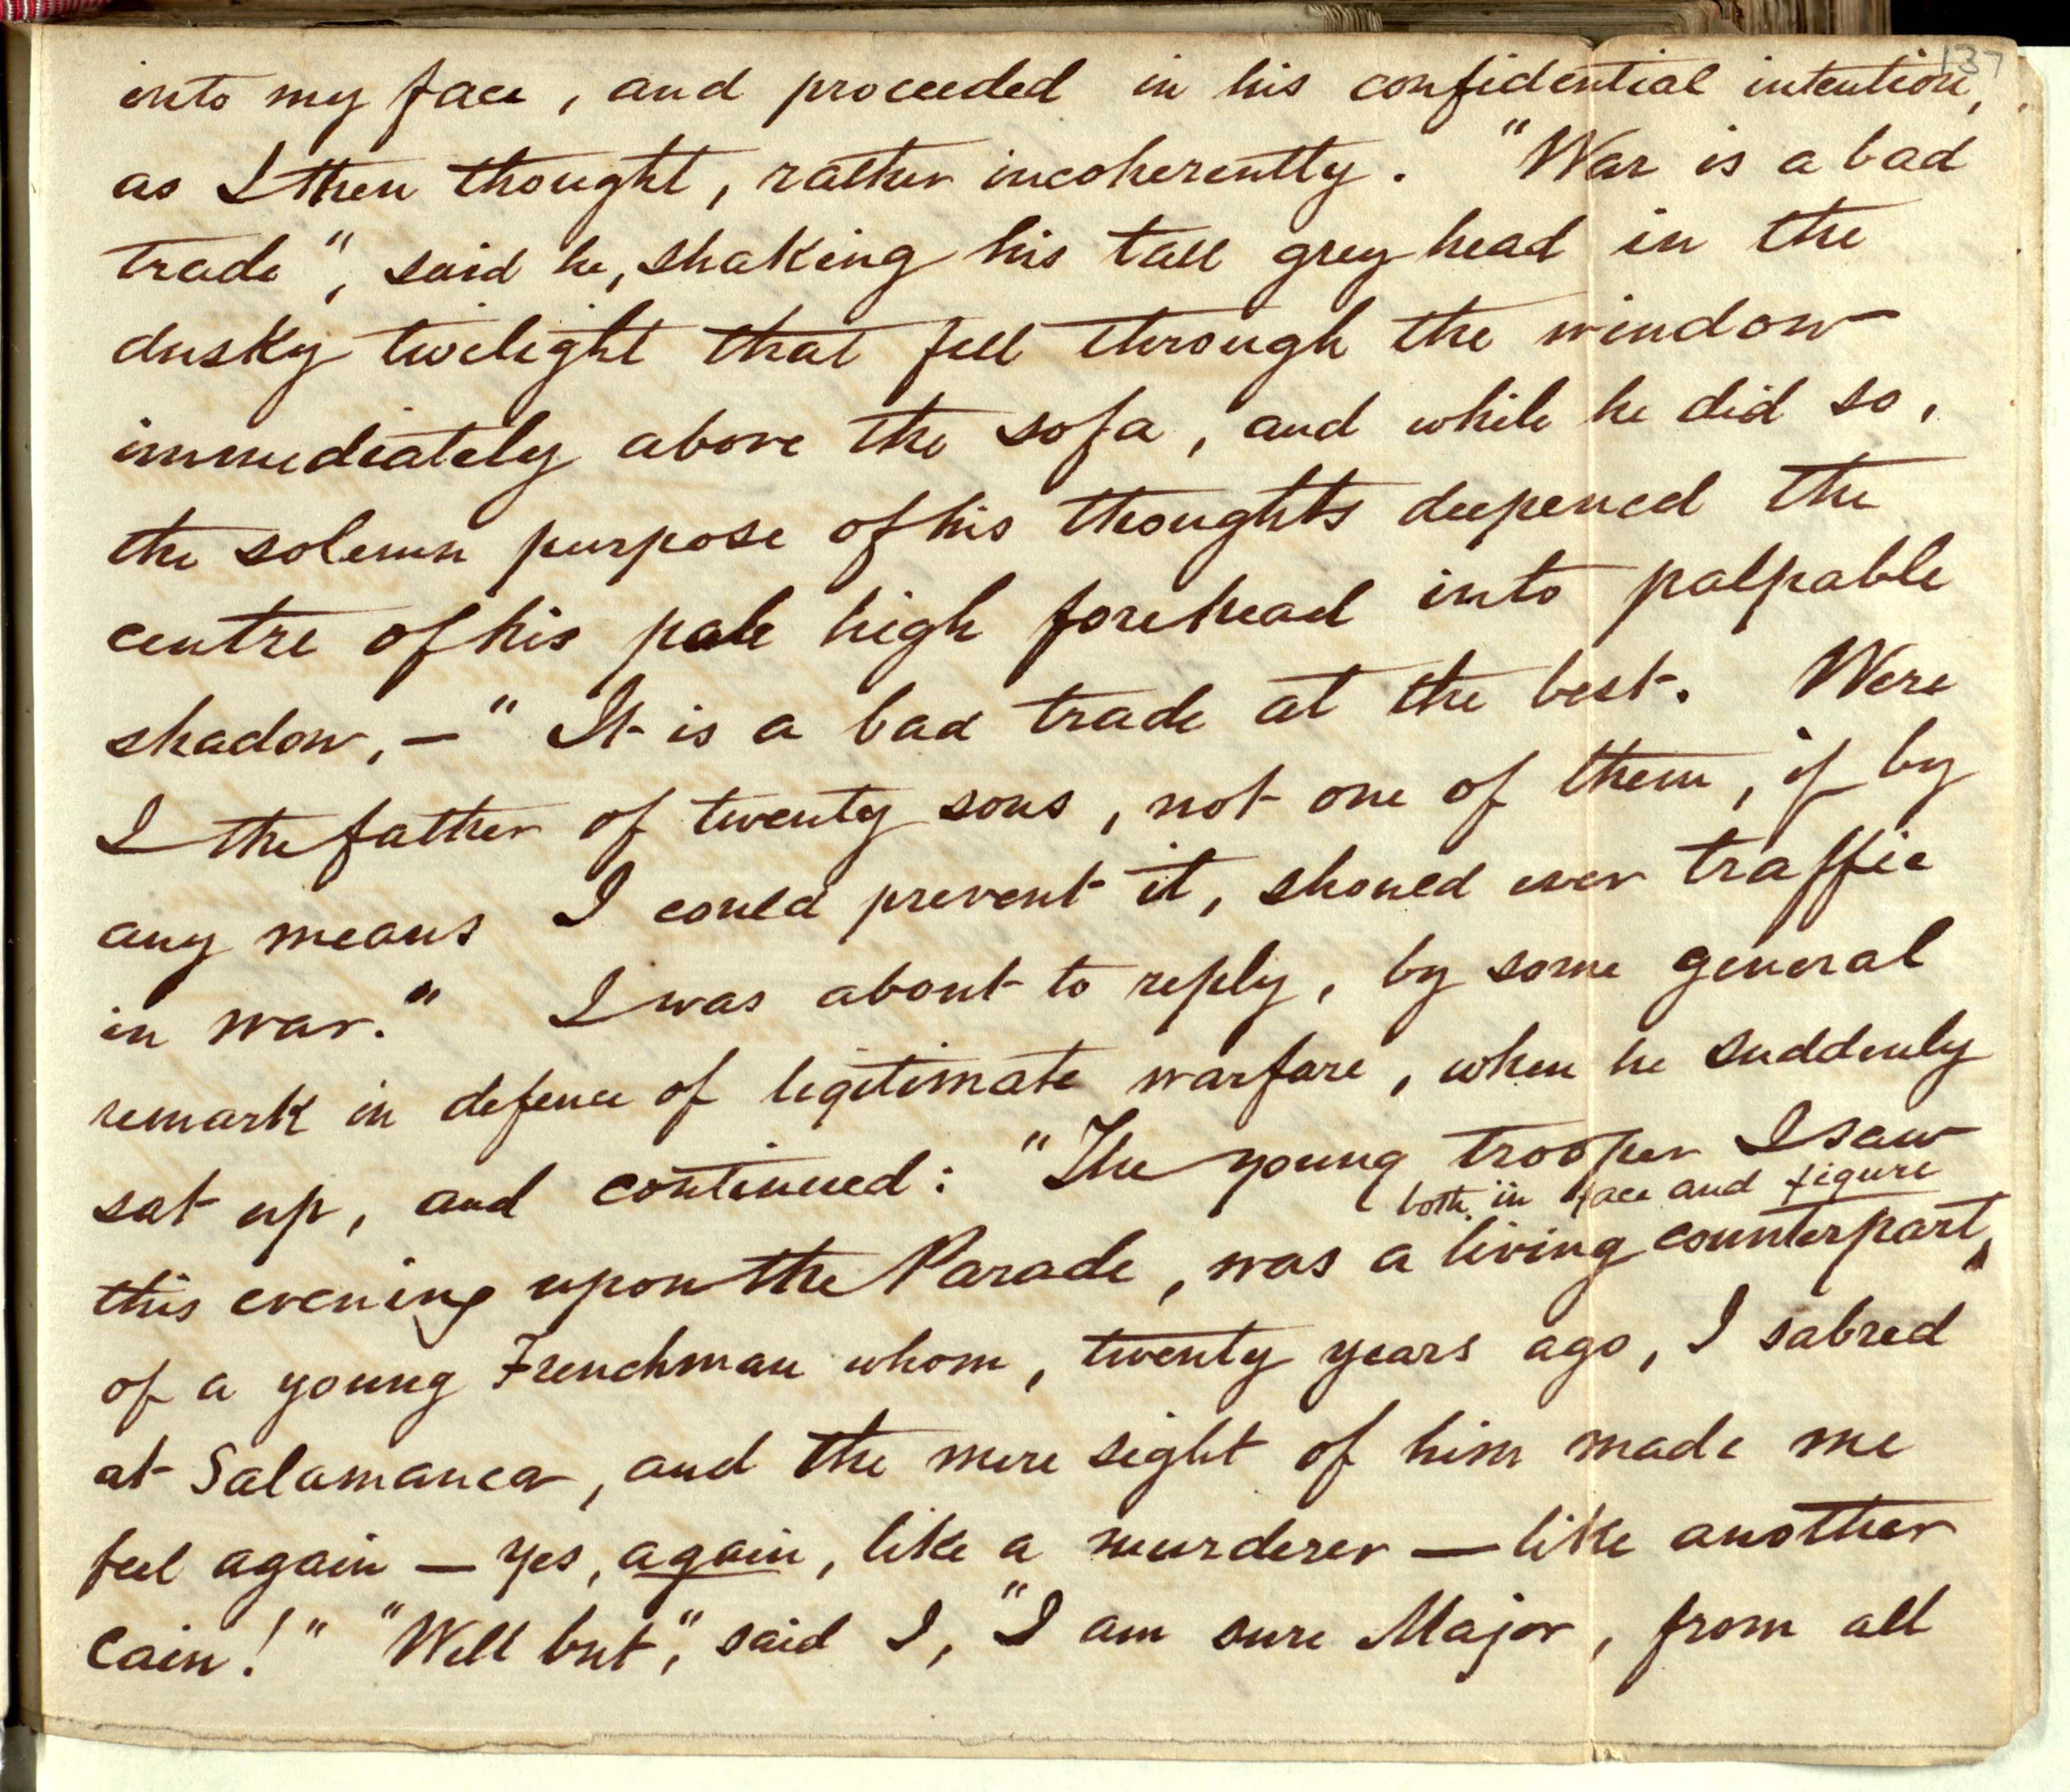 137
into my face, and proceeded in his confidential intention,
as I then thought, rather incoherently. "War is a bad
trade", said he, shaking his tall grey head in the
dusky twilight that fell through the window
immediately above the sofa, and while he did so,
the solemn purpose of his thoughts deepened the
centre of his pale high forehead into palpable
shadow, — "It is a bad trade at the best. Were
I the father of twenty sons, not one of them, if by
any means I could prevent it, should ever traffic
in war." I was about to reply, by some general
remark in defence of legitimate warfare, when he suddenly
sat up, and continued: "The young trooper I saw
both in face and figure
this evening upon the Parade, was a living counterpart,
of a young Frenchman whom, twenty years ago, I sabred
at Salamanca, and the mere sight of him made me
feel again — yes, again, like a murderer — like another
Cain!" "Well but", said I, "I am sure Major, from all